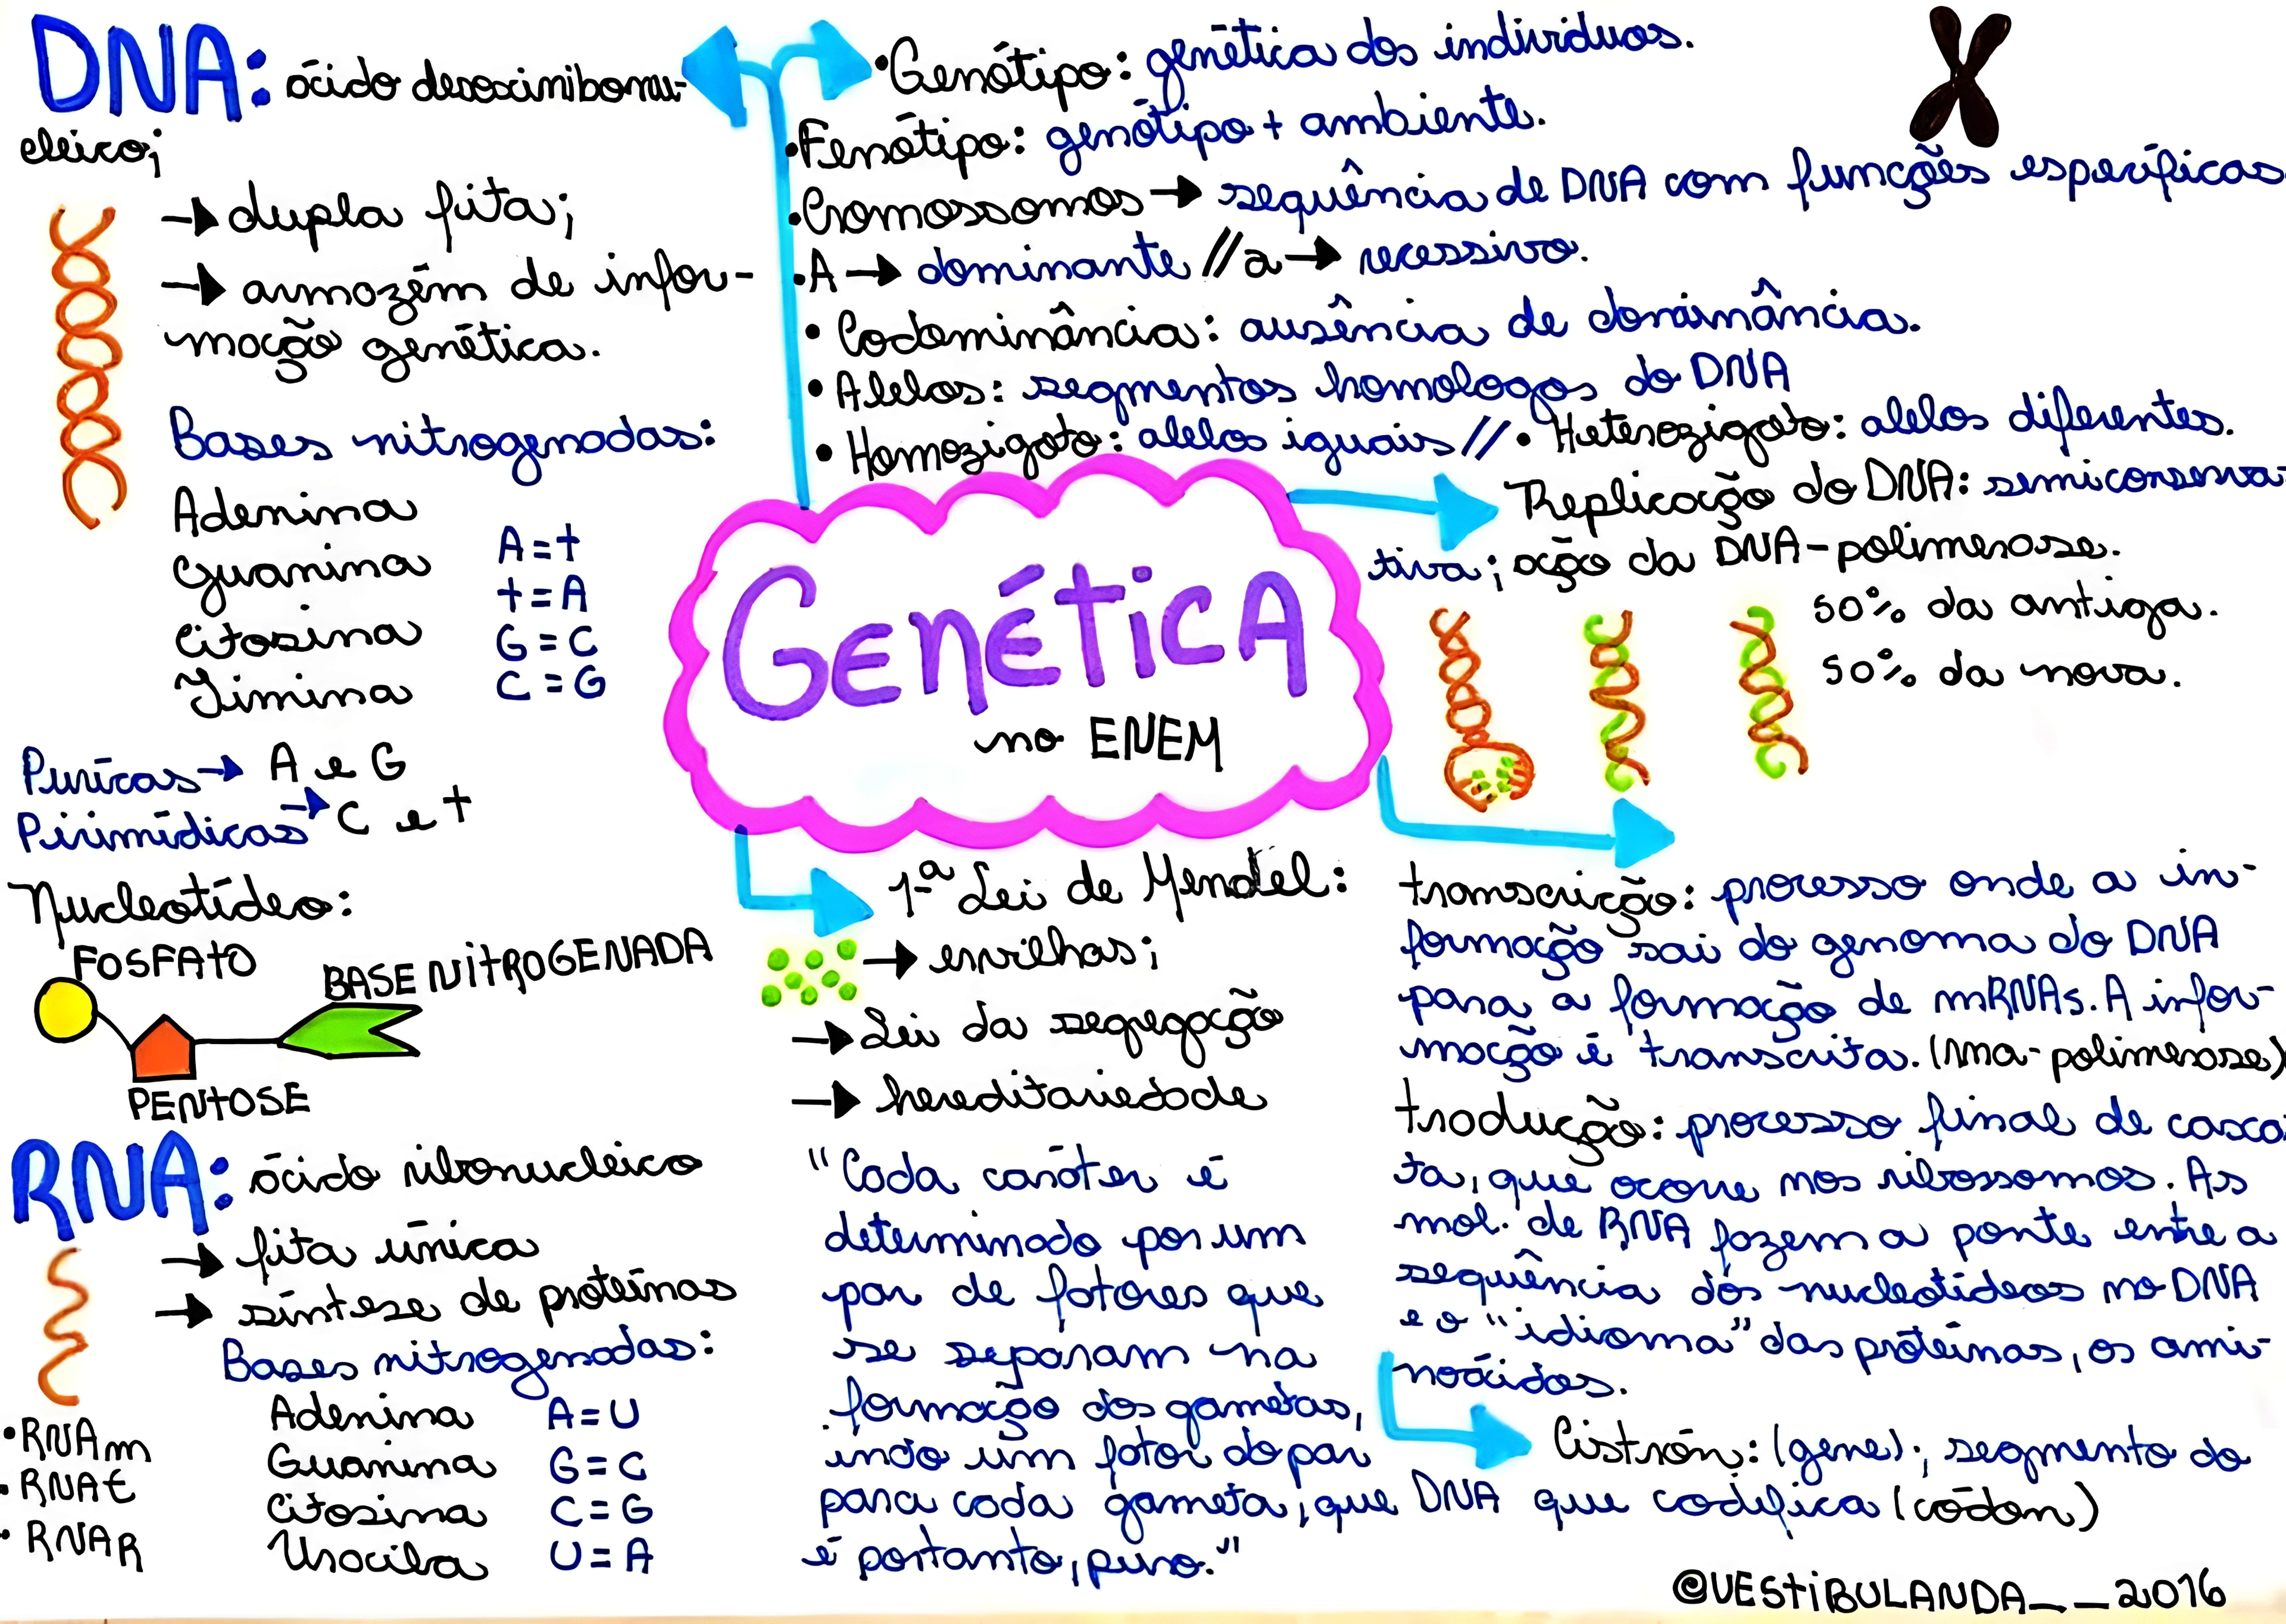 DNA: ácido desoxirribonu-
cleico;
→ dupla fita;
→ armazém de infor-
mação genética.
Bases nitrogenadas:
Adenina
Guanina
Citosina
Timina
A = t
t = A
G = C
C = G
Purícas → A e G
Pirimídicas → C e t
Nucleotídeo:
FOSFAtO
BASE NitROGENADA
PENtOSE
RNA: ácido ribonucleico
→ fita única
→ síntese de proteínas
Bases nitrogenadas:
Adenina A = U
Guanina G = C
Citosina C = G
Uracila U = A
• RNAm
• RNAt
• RNAR
• Genótipo: genética dos indivíduos.
• Fenótipo: genótipo + ambiente.
• Cromossomos → sequência de DNA com funções específicas
• A → dominante // a → recessivo.
• Codominância: ausência de dominância.
• Alelos: segmentos homologos do DNA
• Homozigoto: alelos iguais // • Heterozigoto: alelos diferentes.
GENÉtiCA
no ENEM
Replicação do DNA: semiconserva
tiva; ação da DNA-polimerase.
50% da antiga.
50% da nova.
1ª Lei de Mendel:
→ ervilhas;
→ Lei da segregação
→ hereditariedade
"Cada caráter é
determinado por um
par de fatores que
se separam na
formação dos gametas,
indo um fator do par
para cada gameta, que
é portanto, puro."
transcrição: processo onde a in-
formação sai do genoma do DNA
para a formação de mRNAs. A infor-
mação é transcrita. (rna-polimerase)
tradução: processo final de casca
ta, que ocorre nos ribossomos. As
mol. de RNA fazem a ponte entre a
sequência dos nucleotídeos no DNA
e o "idioma" das proteínas, os ami-
noácidos.
Cistrón: (gene); segmento do
DNA que codifica (códon)
@VEStiBULANDA__2016